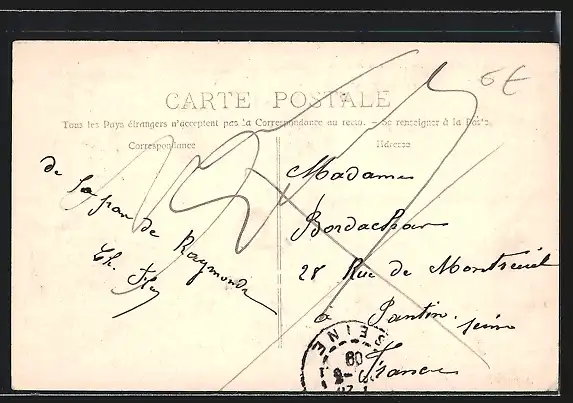 6 €
CARTE POSTALE
Tous les Pays étrangers n'acceptent pas la Correspondance au recto. - Se renseigner à la Poste.
Correspondance
Adresse
de
la part de Raymonde
Ch.
Madame
28 Rue de Montreuil
à Pantin. Seine
France
SEINE
09